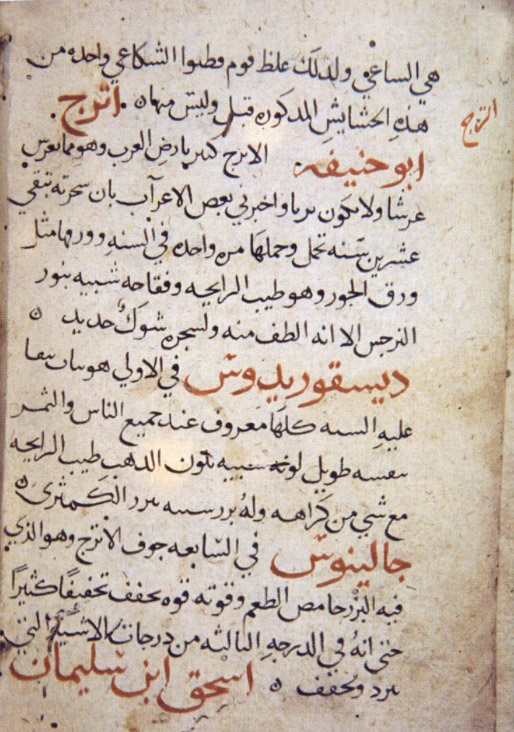 هي الساعي ولذلك غلط قوم فظنوا الشكاعي واحده من
هذه الحشايش المذكوره قبل وليس منها ه اترج
اترج
ابو حنيفه الاترج كثير بارض العرب وهو مما يغرس
غرسا ولا يكون بريا واخبرني بعض الاعرآب بان شجرته تبقي
عشرين سنه تحمل وحملها مره واحده في السنه وورقها مثل
ورق الجوز وهو طيب الرايحه وفقاحه شبيه بنور
النرجس الا انه الطف منه ولشجره شوك حديد ه
ديسقوريدوس في الاولي هو نبات تبقا
عليه السنه كلها معروف عند جميع الناس والثمر
بنفسه طويل لونه شبيه بلون الذهب طيب الرايحه
مع شي من كراهه وله بزر شبيه ببزر الكمثري ه
جالينوس في السابعه جوف الاترج وهو الذي
فيه البزر حامض الطعم وقوته قوه تجفف تجفيفا كثيرا
حتي انه في الدرجه الثالثه من درجات الاشيا التي
تبرد وتجفف ه اسحق ابن سليمان